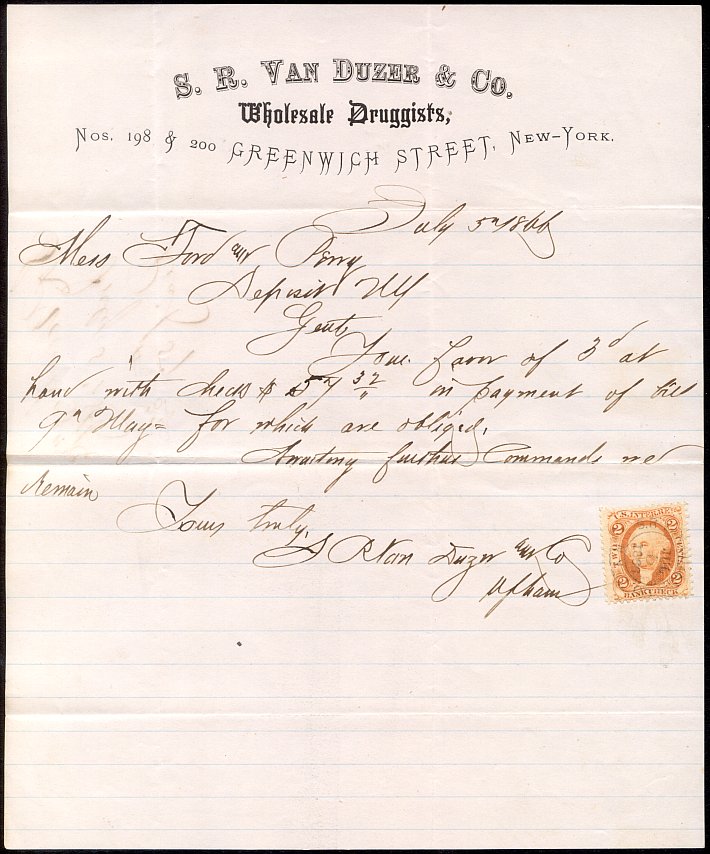 S. R. VAN DUZER & CO.
Wholesale Druggists,
NOS. 198 & 200 GREENWICH STREET, NEW-YORK.
July 5th 1866
Mess Ford and Perry
Deposit NY
Gents
Your favor of 3d at
hand with check $ 57 32/" in payment of bill
9th May= for which are obliged,
Awaiting further Commands we
Remain
Yours truly,
S R Van Duzer and Co
Upham
U.S. INTER. REV.
2 2
TWO CENTS
2 2
BANK CHECK